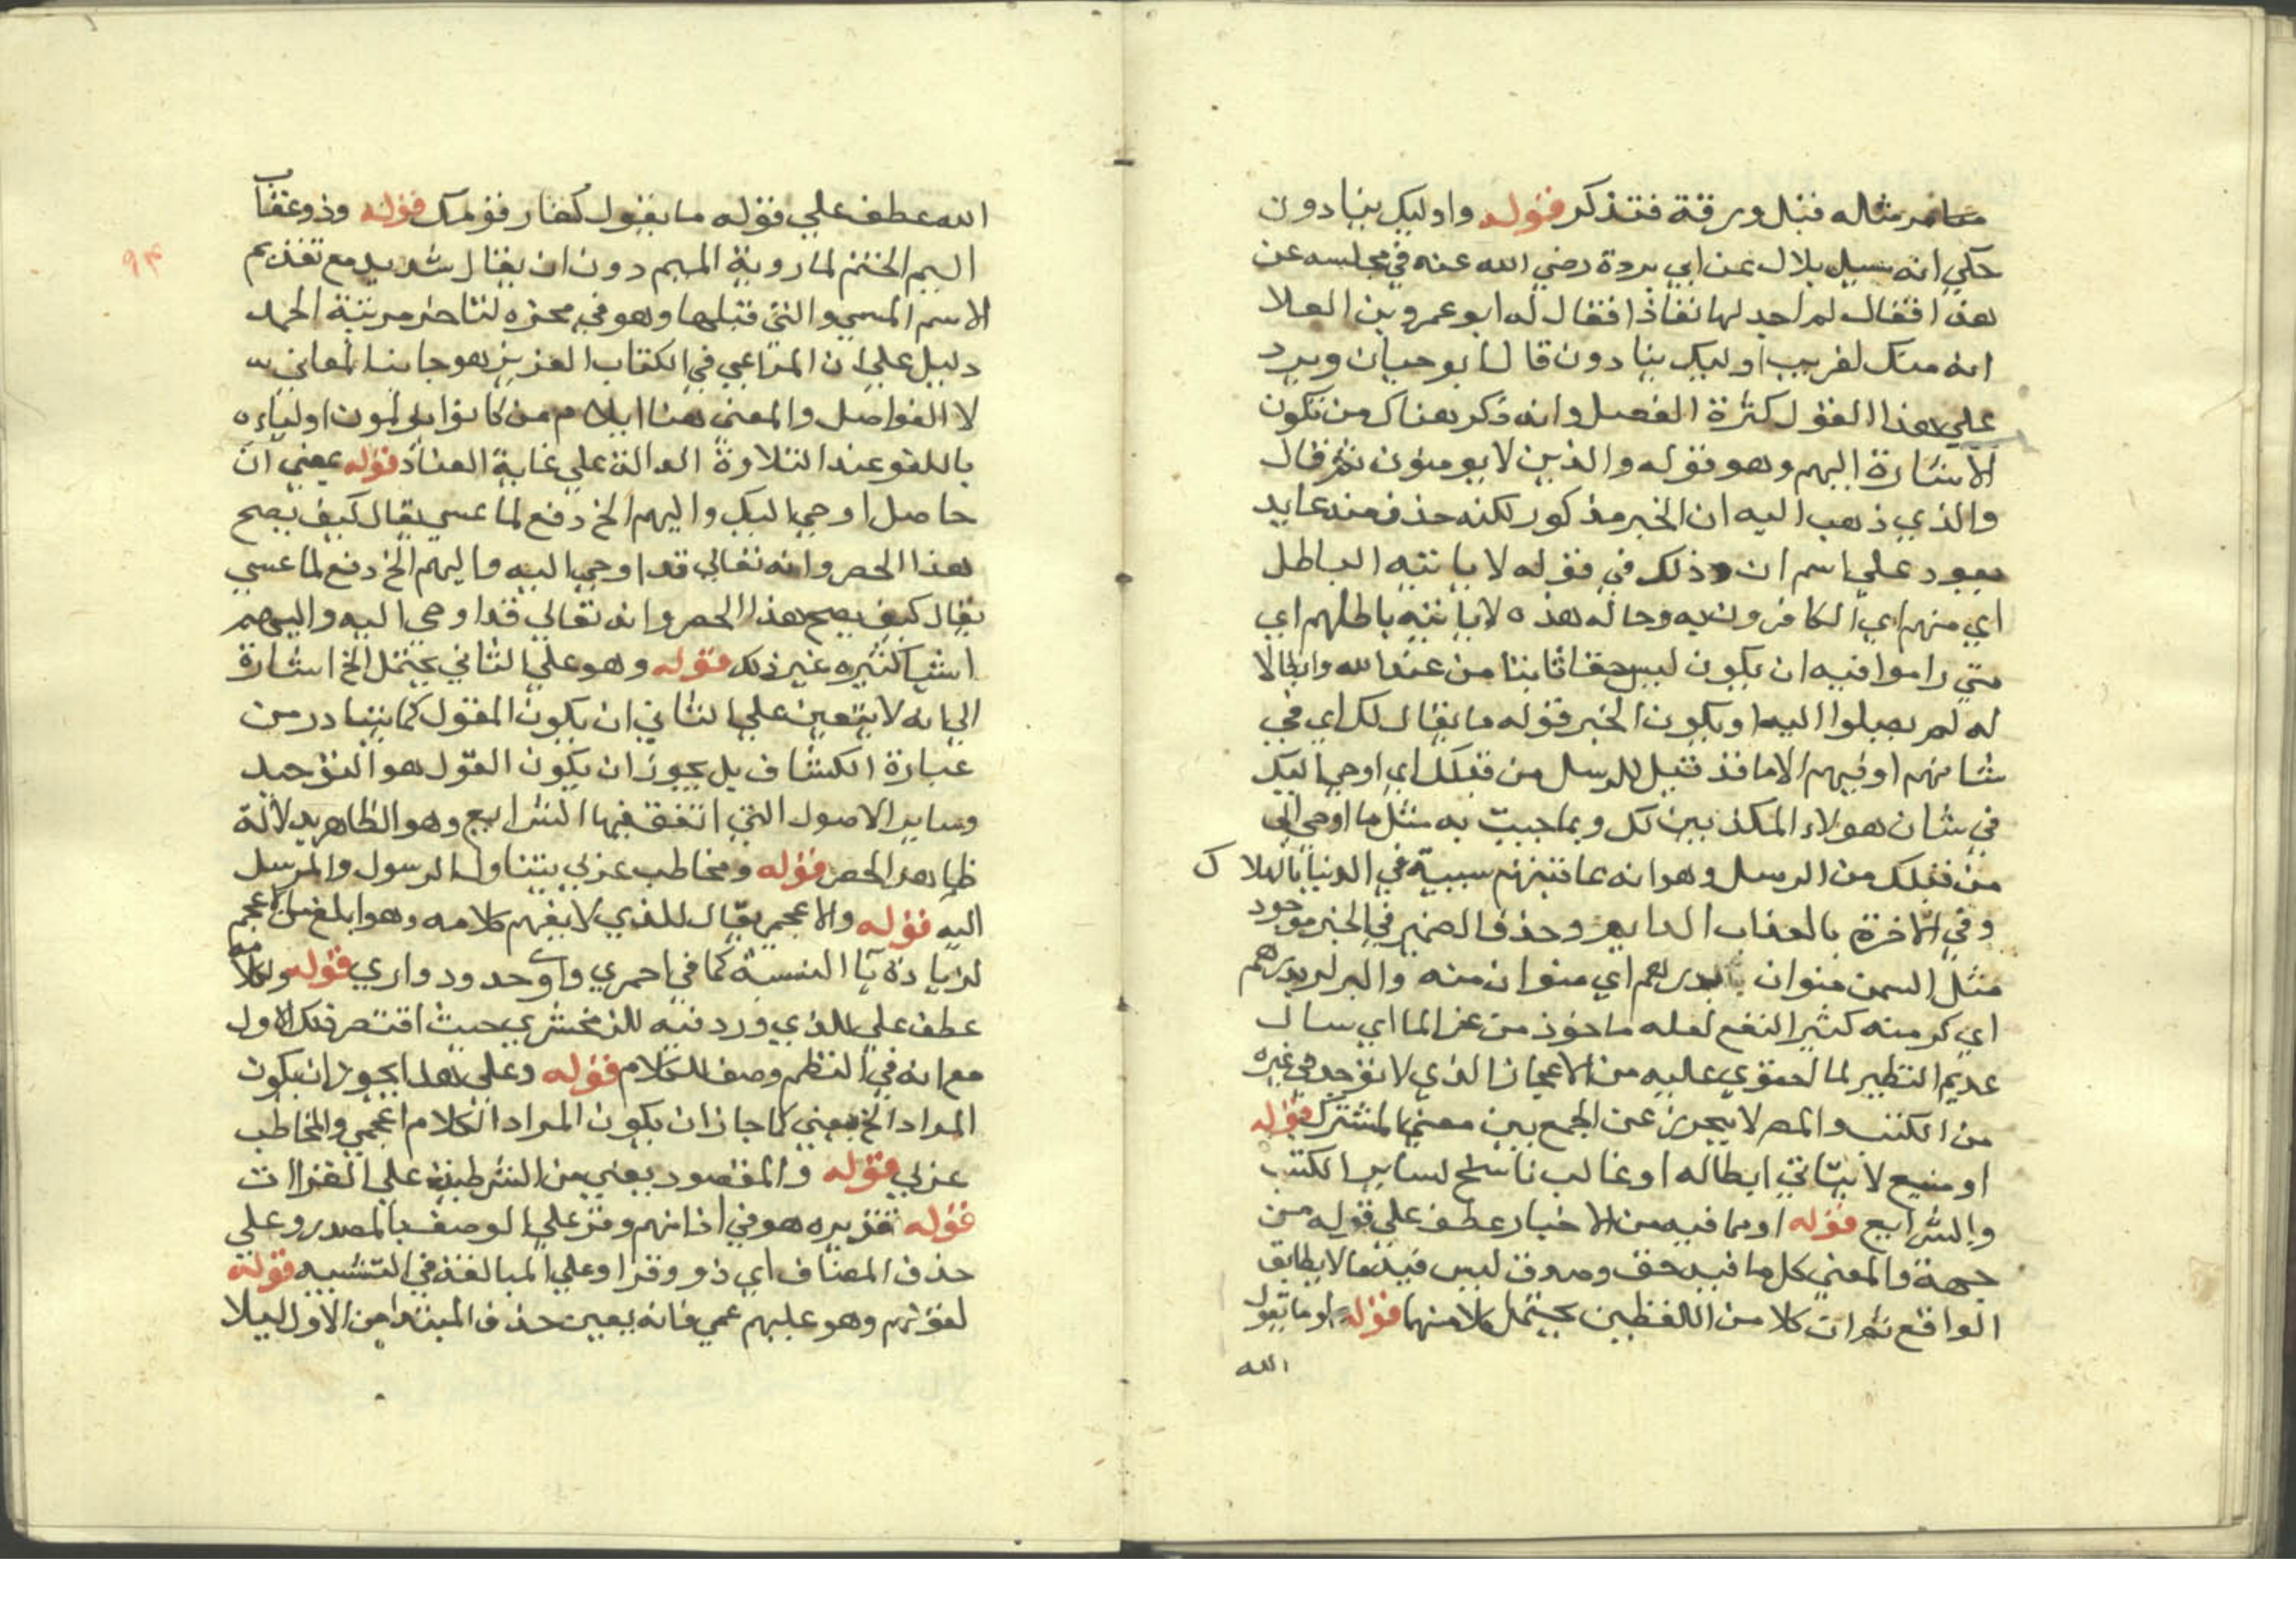 مر مثاله قبل ورقة فتذكر قوله واوليك ينادون
حكي انه سيل بلال بن ابي بردة رضي الله عنه في مجلسه عن
هذا فقال لم اجد لها نفاذا فقال له ابو عمرو بن العلا
انه منك لقريب اوليك ينادون قال ابو حيان ويرد
علي هذا القول كثرة الفصل وانه ذكر هناك من تكون
الاشارة اليهم وهو قوله والذين لا يومنون ثم قال
والذي ذهب اليه ان الخبر مذكور لكنه حذف منه عايد
يعود علي اسم ان وذلك في قوله لا ياتيه الباطل
اي منهم اي الكافرون به وحاله هذه لا ياتيه باطلهم اي
متي راموا فيه ان يكون ليس حقا ثابتا من عند الله وابطالا
له لم يصلوا اليه او يكون الخبر قوله ما يقال لك اي في
شانهم او فيهم الا ما قد قيل للرسل من قبلك اي اوحي اليك
في شان هولاء المكذبين لك وبما جيت به مثل ما اوحي الي
من قبلك من الرسل وهو انه عاقبتهم سيية في الدنيا بالهلاك
وفي الاخرة بالعذاب الدايم وحذف الضمير في الخبر موجود
مثل السمن منوان بدرهم اي منوان منه والبر كر بدرهم
اي كر منه كثير النفع لعله ماخوذ من عز الما اي سال
عديم النظير لما احتوي عليه من الاعجاز الذي لا يوجد في غيره
من الكتب والمص لا يحرز عن الجمع بين معني المشترك قوله
او منيع لا يتاتي ابطاله او غالب ناسخ لساير الكتب
والشرايع قوله او مما فيه من الاخبار عطف علي قوله من
جهة والمعني كل ما فيه حق وصدق ليس فيه ما لا يطابق
الواقع ثم ان كلا من اللفظين يحتمل كلا منهما قوله او ما يقول
الله
۹۴
الله عطف علي قوله ما يقول كفار قومك قوله وذو عقاب
اليم اختتم لما روية الميم دون ان يقال شديد مع تقديم
الاسم المسي والتي قبلها وهو في محزه لتاخر مرتبة الحمد
دليل علي ان المراعي في الكتاب العزيز هو جانب المعاني
لا الفواصل والمعني هنا ايلام من كانوا يولمون اولياءه
باللغو عند التلاوة الدالة علي غاية العناد قوله يعني ان
حاصل اوحي اليك واليهم الخ دفع لما عسي يقال كيف يصح
هذا الحصر وانه تعالي قد اوحي اليه واليهم الخ دفع لما عسي
يقال كيف يصح هذا الحصر وانه تعالي قد اوحي اليه واليهم
اشيا كثيره غير ذلك قوله وهو علي الثاني يحتمل الخ اشارة
الي انه لا يتعين علي الثاني ان يكون المقول كما يتبادر من
عبارة الكشاف بل يجوز ان يكون القول هو التوحيد
وساير الاصول التي اتفق فيها الشرايع وهو الظاهر بدلالة
ظاهر الحصر قوله ومخاطب عربي يتناول الرسول والمرسل
اليه قوله والاعجمي يقال للذي لا يفهم كلامه وهو ابلغ من الاعجم
لزيادة يا النسبة كما في احمري واوحدي ودواري قوله ولكلامه
عطف علي الذي ورد فيه للزمخشري حيث اقتصر فلك الاول
مع انه في النظم وصف للكلام قوله وعلي هذا يجوز ان يكون
المراد الخ يعني كما جاز ان يكون المراد الكلام اعجمي والمخاطب
عربي قوله والمقصود يعني من الشرطية علي القراات
قوله تقديره هو في اذانهم وقر علي الوصف بالمصدر وعلي
حذف المضاف اي ذو وقر او علي المبالغة في التشبيه قوله
لقولهم وهو عليهم عمي فانه يعين حذف المبتدا من الاول ليلا